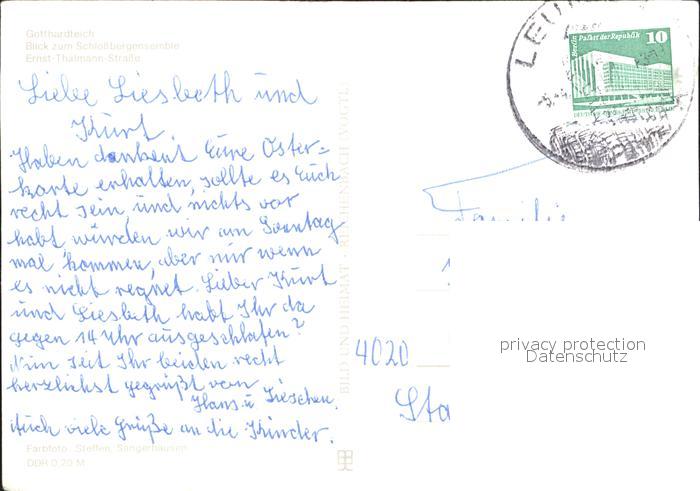 Gotthardteich
Blick zum Schloßbergensemble
Ernst-Thälmann-Straße
Liebe Liesbeth und
Kurt.
Haben dankent Eure Oster=
karte erhalten, sollte es Euch
recht sein, und nichts vor
habt würden wir am Sonntag
mal kommen, aber nur wenn
es nicht regnet. Lieber Kurt
und Liesbeth habt Ihr da
gegen 14 Uhr ausgeschlafen?
Nun seit Ihr beiden recht
herzlichst gegrüßt von
Hans u Lieschen.
Auch viele Grüße an die Kinder.
Farbfoto: Steffen, Sangerhausen
DDR 0,20 M
BILD UND HEIMAT · REICHENBACH (VOGTL)
LEU
Berlin Palast der Republik 10
Familie
4020
Sta
privacy protection
Datenschutz